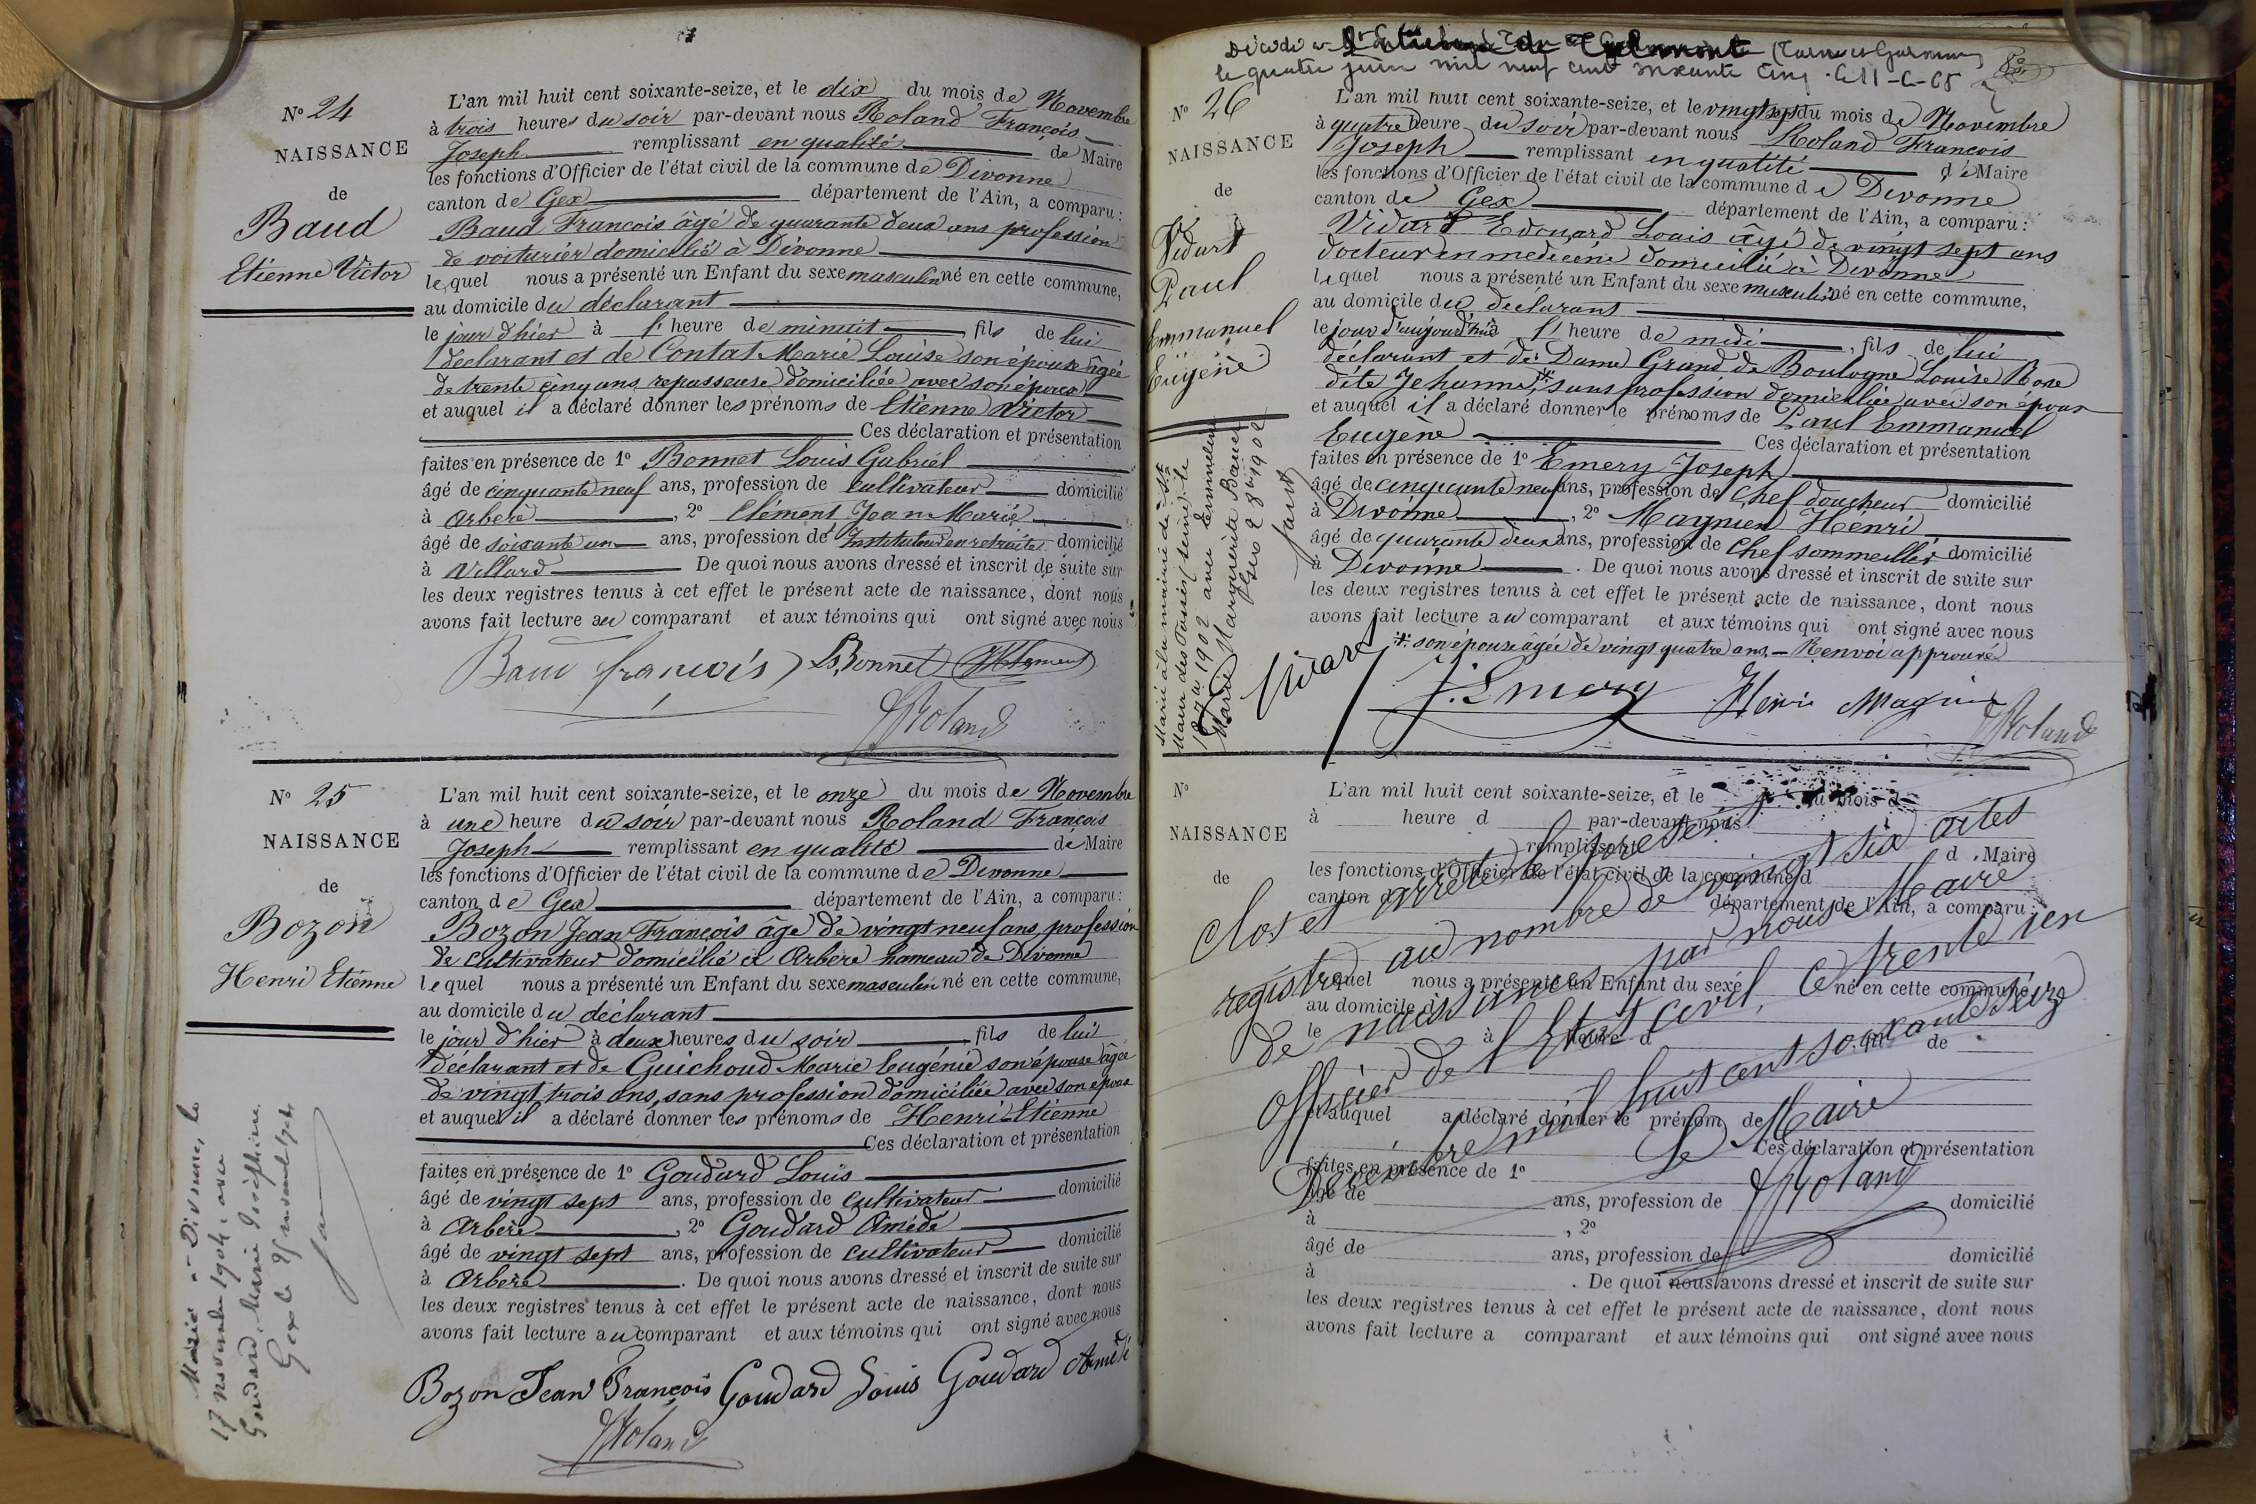 No 24
NAISSANCE
de
Baud
Etienne Victor
L'an mil huit cent soixante-seize, et le dix du mois de Novembre
à trois heures du soir par-devant nous Roland François
Joseph remplissant en qualité de Maire
les fonctions d'Officier de l'état civil de la commune de Divonne
canton de Gex département de l'Ain, a comparu :
Baud François âgé de quarante deux ans profession
de voiturier domicilié à Divonne
lequel nous a présenté un Enfant du sexe masculin né en cette commune,
au domicile du déclarant
le jour d'hier à l'heure de minuit fils de lui
déclarant et de Contat Marie Louise son épouse âgée
de trente cinq ans repasseuse domiciliée avec son époux
et auquel il a déclaré donner les prénoms de Etienne Victor
Ces déclaration et présentation
faites en présence de 1o Bonnet Louis Gabriel
âgé de cinquante neuf ans, profession de cultivateur domicilié
à Arbère , 2o Clément Jean Marie
âgé de soixante un ans, profession de Instituteur en retraite domicilié
à Villard De quoi nous avons dressé et inscrit de suite sur
les deux registres tenus à cet effet le présent acte de naissance, dont nous
avons fait lecture au comparant et aux témoins qui ont signé avec nous
Baud françois Ls Bonnet Clément
Roland
No 25
NAISSANCE
de
Bozon
Henri Etienne
L'an mil huit cent soixante-seize, et le onze du mois de Novembre
à une heure du soir par-devant nous Roland François
Joseph remplissant en qualité de Maire
les fonctions d'Officier de l'état civil de la commune de Divonne
canton de Gex département de l'Ain, a comparu :
Bozon Jean François âgé de vingt neuf ans, profession
de cultivateur domicilié à Arbère hameau de Divonne
lequel nous a présenté un Enfant du sexe masculin né en cette commune,
au domicile du déclarant
le jour d'hier à deux heures du soir fils de lui
déclarant et de Guichoud Marie Eugénie son épouse âgée
de vingt trois ans, sans profession domiciliée avec son époux
et auquel il a déclaré donner les prénoms de Henri Etienne
Ces déclaration et présentation
faites en présence de 1o Goudard Louis
âgé de vingt sept ans, profession de cultivateur domicilié
à Arbère , 2o Goudard Amédé
âgé de vingt sept ans, profession de cultivateur domicilié
à Arbère . De quoi nous avons dressé et inscrit de suite sur
les deux registres tenus à cet effet le présent acte de naissance, dont nous
avons fait lecture au comparant et aux témoins qui ont signé avec nous
Bozon Jean François Goudard Louis Goudard Amédé
Roland
Marié à Divonne, le
17 novembre 1904, avec
Goudard, Marie Joséphine.
Gex le
Décédé à (Tarn et Garonne)
le quatre juin mil neuf cent soixante cinq
No 26
NAISSANCE
de
Vidart
Paul
Emmanuel
Eugène
Marié à la mairie de St
Maur des Fossés (Seine) le
1902 avec Emmeline
Marie Marguerite
L'an mil huit cent soixante-seize, et le vingt sept du mois de Novembre
à quatre heure du soir par-devant nous Roland François
Joseph remplissant en qualité de Maire
les fonctions d'Officier de l'état civil de la commune de Divonne
canton de Gex département de l'Ain, a comparu :
Vidart Edouard Louis âgé de vingt sept ans
docteur en médecine domicilié à Divonne
lequel nous a présenté un Enfant du sexe masculin né en cette commune,
au domicile du déclarant
le jour d'aujourd'hui à l'heure de midi , fils de lui
déclarant et de Dame Grand de Boulogne Louise Rose
dite Jehanne, * sans profession domiciliée avec son époux
et auquel il a déclaré donner le prénoms de Paul Emmanuel
Eugène Ces déclaration et présentation
faites en présence de 1o Emery Joseph
âgé de cinquante neuf ans, profession de Chef doucheur domicilié
à Divonne , 2o Magnien Henri
âgé de quarante deux ans, profession de chef sommeiller domicilié
à Divonne . De quoi nous avons dressé et inscrit de suite sur
les deux registres tenus à cet effet le présent acte de naissance, dont nous
avons fait lecture au comparant et aux témoins qui ont signé avec nous
* son épouse âgée de vingt quatre ans. – Renvoi approuvé
Vidart J. Emery Henri Magnien
Roland
No
NAISSANCE
de
L'an mil huit cent soixante-seize, et le du mois d
à heure d par-devant nous
remplissant d Maire
les fonctions d'Officier de l'état civil de la commune d
canton d département de l'Ain, a comparu :
lequel nous a présenté un Enfant du sexe né en cette commune,
au domicile d
le à heure d fils de
et auquel a déclaré donner le prénom de
Ces déclaration et présentation
faites en présence de 1o
âgé de ans, profession de domicilié
à , 2o
âgé de ans, profession de domicilié
à . De quoi nous avons dressé et inscrit de suite sur
les deux registres tenus à cet effet le présent acte de naissance, dont nous
avons fait lecture a comparant et aux témoins qui ont signé avec nous
Clos et arrêté le présent
registre au nombre de vingt six actes
de naissances par nous Maire
Officier de l'Etat civil, Ce trente un
Décembre mil huit cent soixante seize
Le Maire
Roland